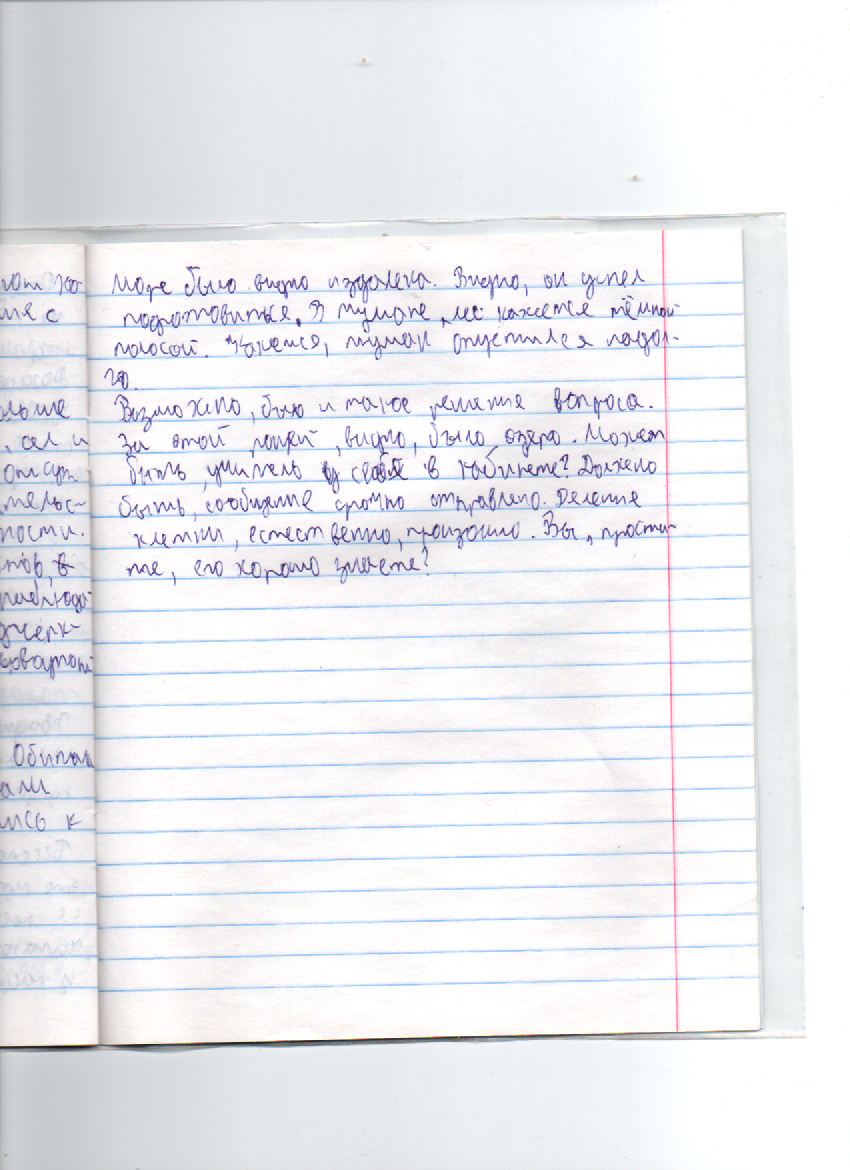 Море было видно издалека. Видно, он успел
подготовиться. В тумане лес кажется тёмной
полосой. Кажется, туман опустился надол-
го.
Возможно, было и такое решение вопроса.
За этой рощей, видно, было озеро. Может
быть, учитель у себя в кабинете? Должно
быть, сообщение срочно отправлено. Деление
клетки, естественно, произошло. Вы, прости-
те, его хорошо знаете?
мя с
ольше
, сел и
мельс-
ности.
тов, в
наблюда-
Обитат
ались к